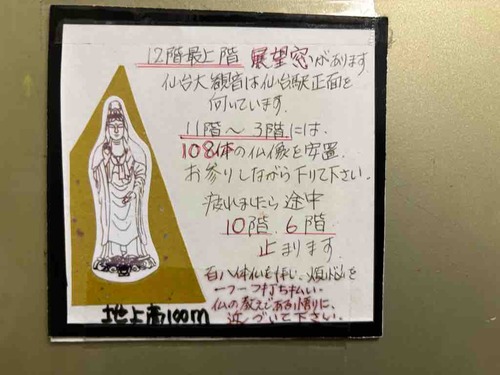 12階最上階 展望窓があります
仙台大観音は仙台駅正面を
向いています.
11階〜3階には、
108体の仏像を安置.
お参りしながら下りて下さい.
疲れましたら途中
10階、6階
止まります
百八体仏を拝し、煩悩を
一つ一つ打ち払い.
仏の教えである悟りに、
近づいて下さい.
地上高100m